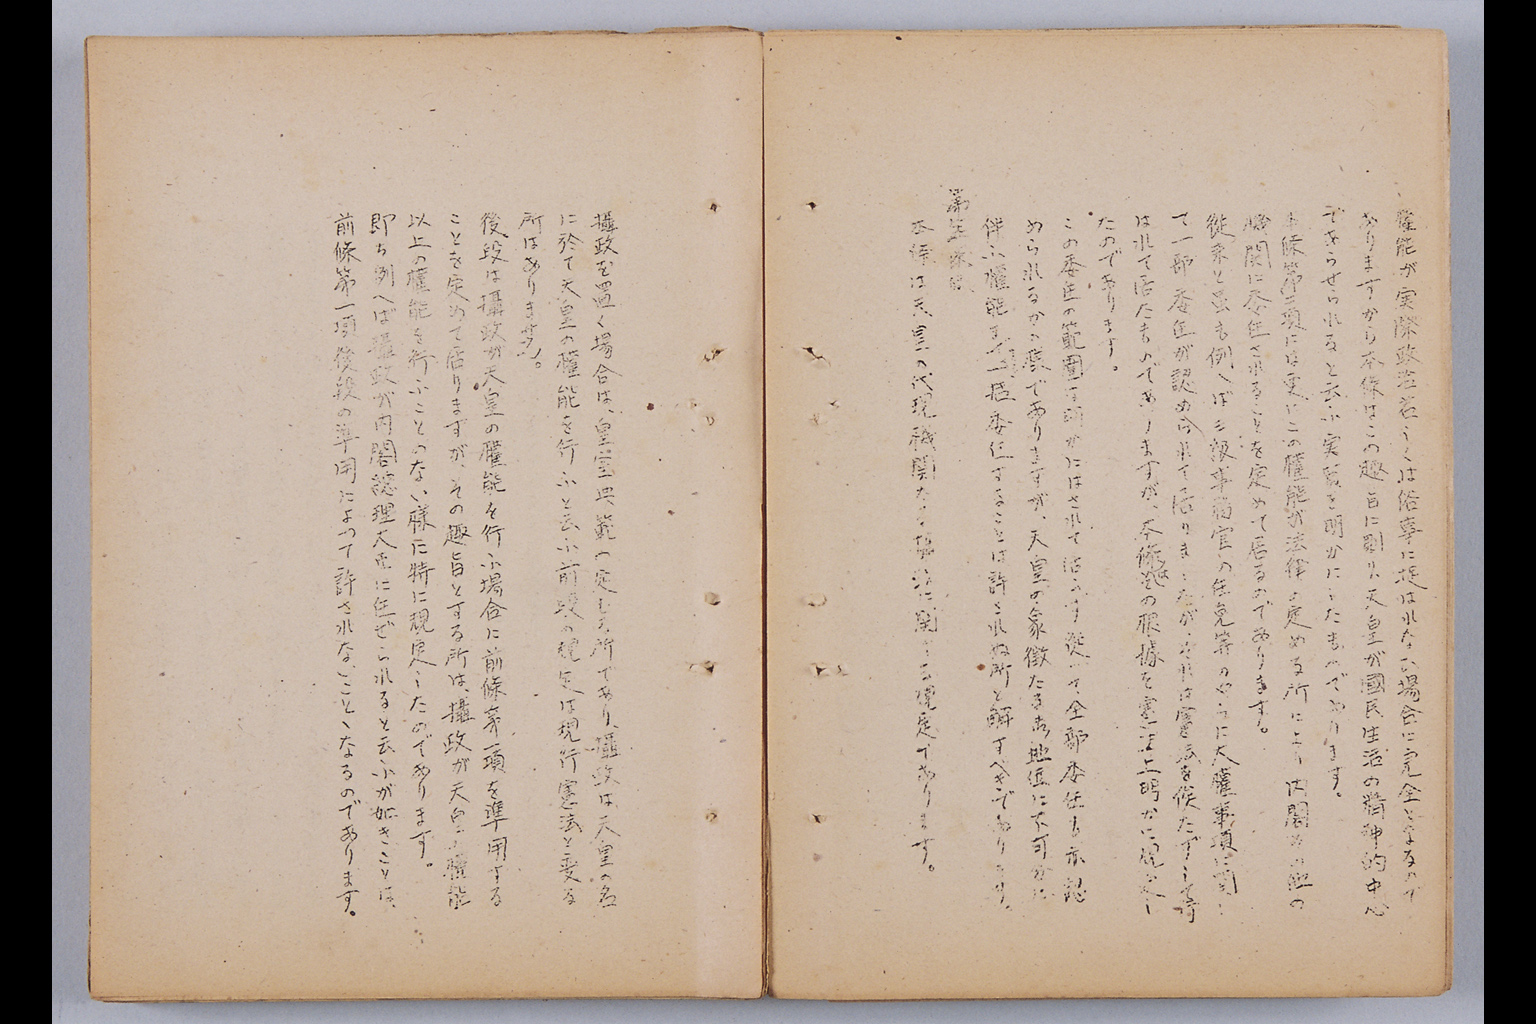 権能が実際政治若しくは俗事に捉はれない場合に完全となるので
ありますから本條はこの趣旨に則り天皇が國民生活の精神的中心
であらせられると云ふ実質を明かにしたものであります。
本條第三項には更にこの権能が法律の定める所により内閣その他の
機関に委任されることを定めて居るのであります。
従来と雖も例へば三級事務官の任免等のやうに大権事項に関し
て一部委任が認められて居りましたが、それは憲法を俟たずして行
はれて居たものでありますが、本條はその根據を憲法上明かに規定し
たのであります。
この委任の範囲は明かにはされて居らず従つて全部委任も亦認
められるかの様でありますが、天皇の象徴たる御地位に不可分に
伴ふ権能まで一括委任することは許されぬ所と解すべきであります。
第五條
本條は天皇の代現機関たる攝政に関する規定であります。
攝政を置く場合は、皇室典範の定むる所であり、攝政は、天皇の名
に於て天皇の権能を行ふと云ふ前段の規定は現行憲法と変る
所はありません。
後段は攝政が天皇の権能を行ふ場合に前條第一項を準用する
ことを定めて居りますが、その趣旨とする所は、攝政が天皇の権能
以上の権能を行ふことのない様に特に規定したのであります。
即ち例へば攝政が内閣総理大臣に任ぜられると云ふが如きことは、
前條第一項後段の準用によつて許されないことゝなるのであります。